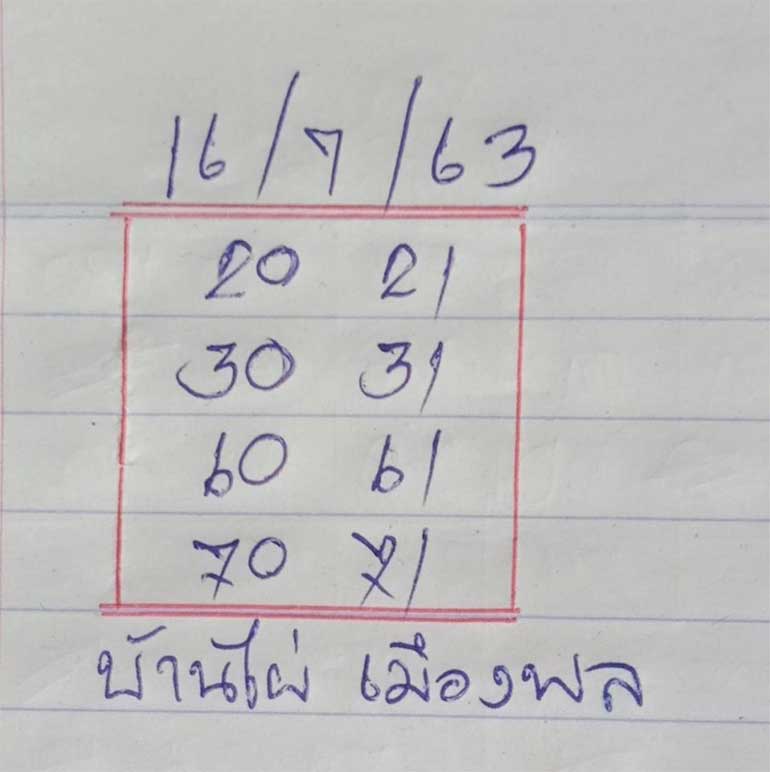 16/7/63
20 21
30 31
60 61
70 71
บ้านไผ่ เมืองพล